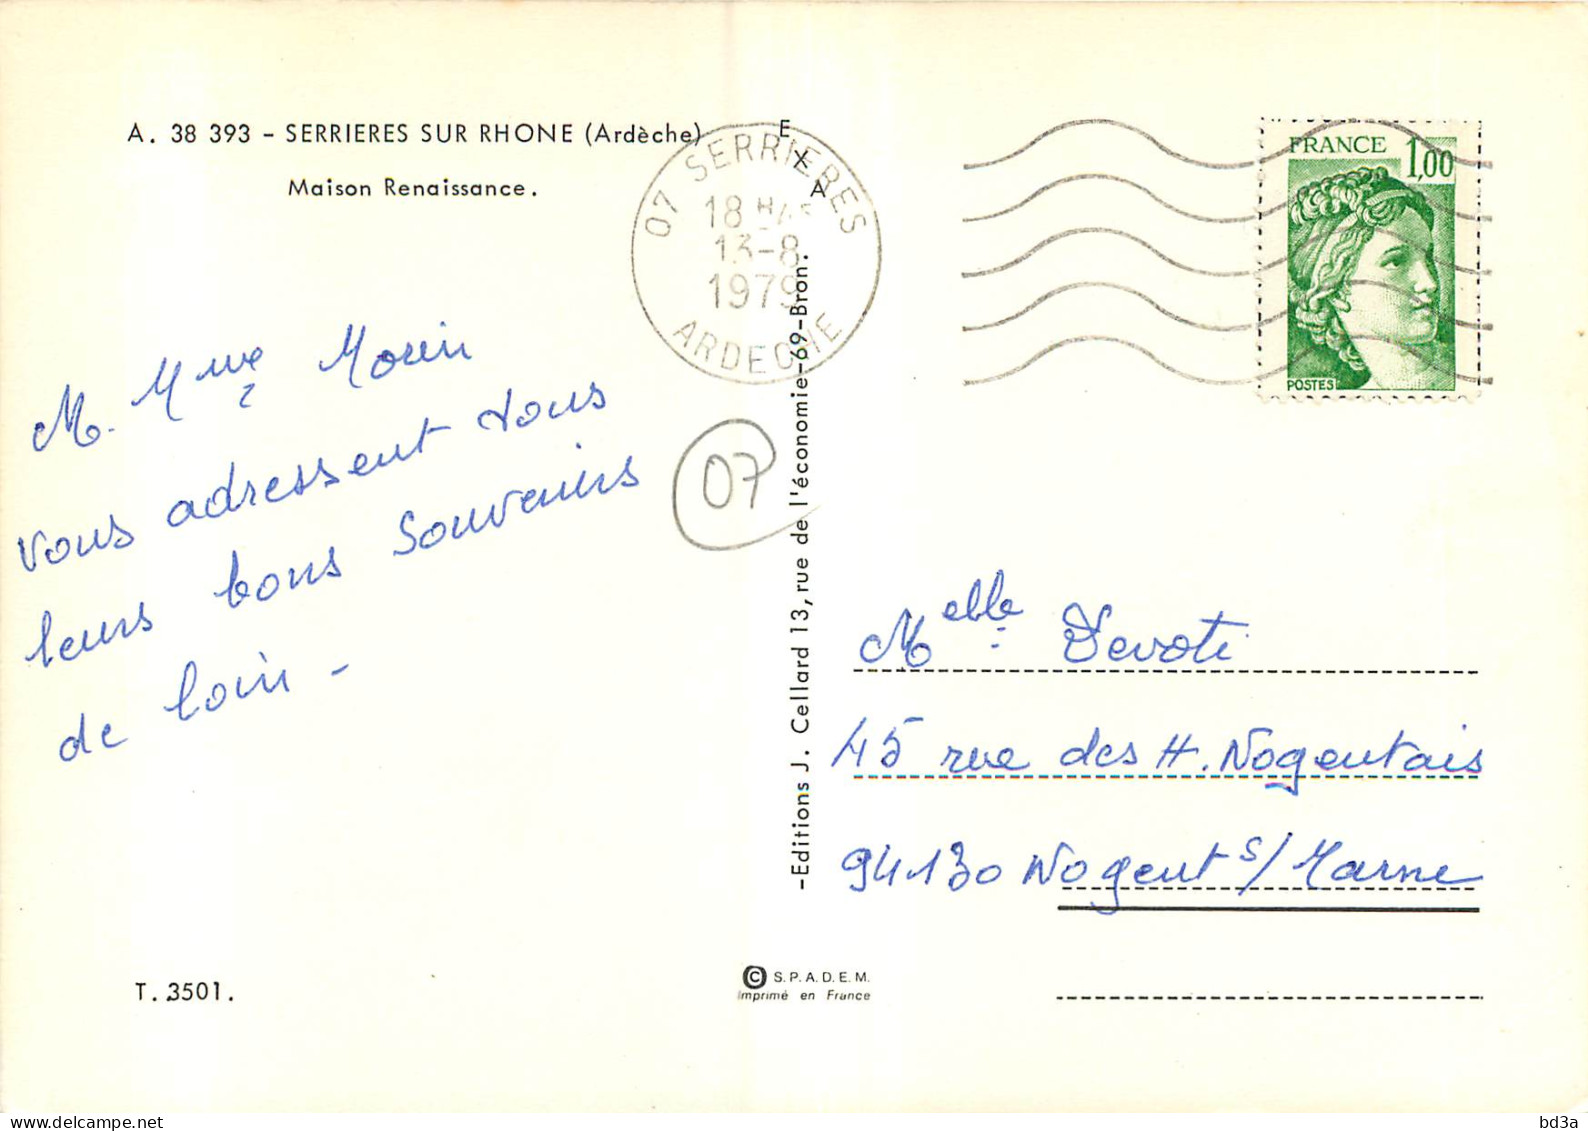 A. 38 393 - SERRIERES SUR RHONE (Ardèche)
Maison Renaissance.
EXA
07 SERRIERES
18 H
13-8
1979
ARDECHE
FRANCE 1,00
POSTES
M. Mme Morin
vous adressent tous
leurs bons souvenirs
de loin -
07
-Editions J. Cellard 13, rue de l'économie-69-Bron.
Melle Devoti
45 rue des H. Nogentais
94130 Nogent s/ Marne
T. 3501.
© S.P.A.D.E.M.
Imprimé en France
delcampe.net
bd3a